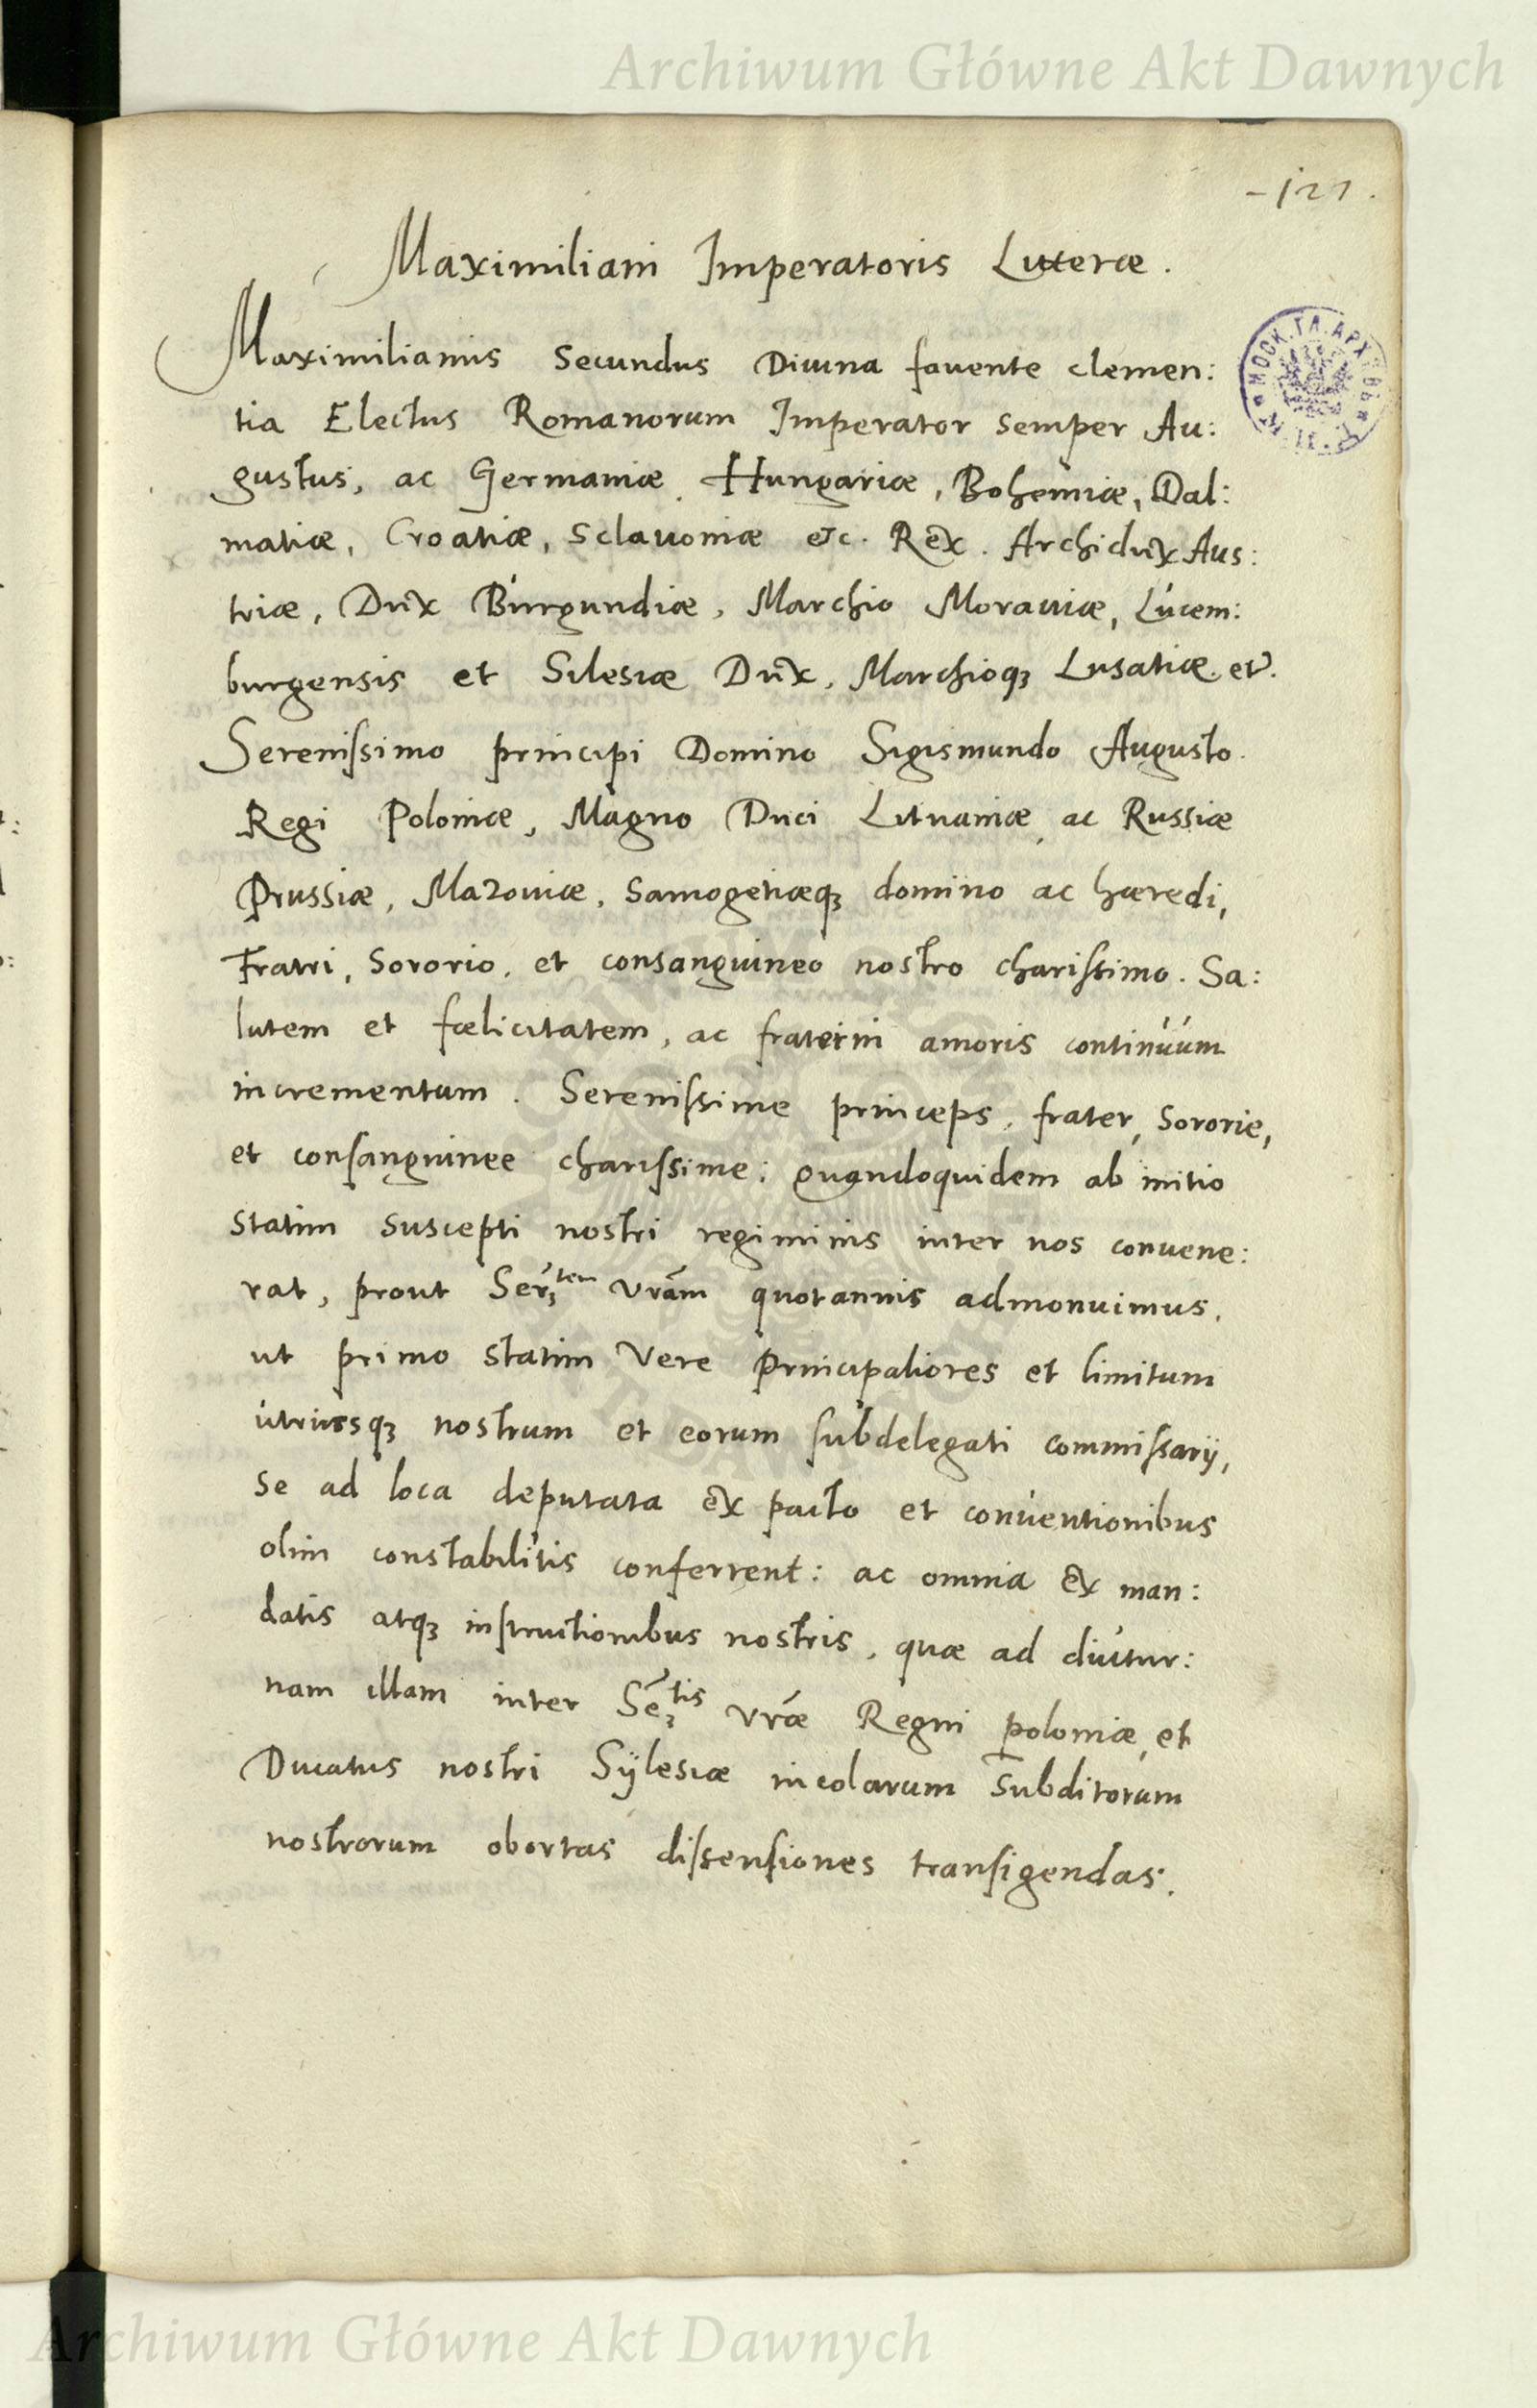 Archiwum Główne Akt Dawnych
-121.
Maximiliani Imperatoris Litteræ.
Maximilianus Secundus Diuina fauente clemen:
tia Electus Romanorum Imperator semper Au:
gustus, ac Germaniæ, Hungariæ, Bohemiæ, Dal:
matiæ, Croatiæ, Sclauoniæ etc. Rex. Archidux Aus:
triæ, Dux Burgundiæ, Marchio Morauiæ, Lucem:
burgensis et Silesiæ Dux, Marchioqꝫ Lusatiæ. etc.
Serenissimo principi Domino Sigismundo Augusto.
Regi Poloniæ, Magno Duci Lituaniæ, ac Russiæ
Prussiæ, Mazouiæ, Samogetiæqꝫ domino ac hæredi,
Fratri, Sororio, et consanguineo nostro charissimo. Sa:
lutem et fœlicitatem, ac fraterni amoris continuum
incrementum. Serenissime princeps, frater, Sororie,
et consanguinee charissime: quandoquidem ab initio
statim suscepti nostri regiminis inter nos conuene:
rat, prout Serꝫtem vrām quotannis admonuimus,
ut primo statim Vere Principaliores et limitum
utriusqꝫ nostrum et eorum subdelegati commissarij,
se ad loca deputata ex pacto et conuentionibus
olim constabilitis conferrent: ac omnia ex man:
datis atqꝫ instructionibus nostris, quæ ad diutur:
nam illam inter Sēꝫtis vræ Regni poloniæ, et
Ducatus nostri Sÿlesiæ incolarum Subditorum
nostrorum obortas dissensiones transigendas.
Archiwum Główne Akt Dawnych